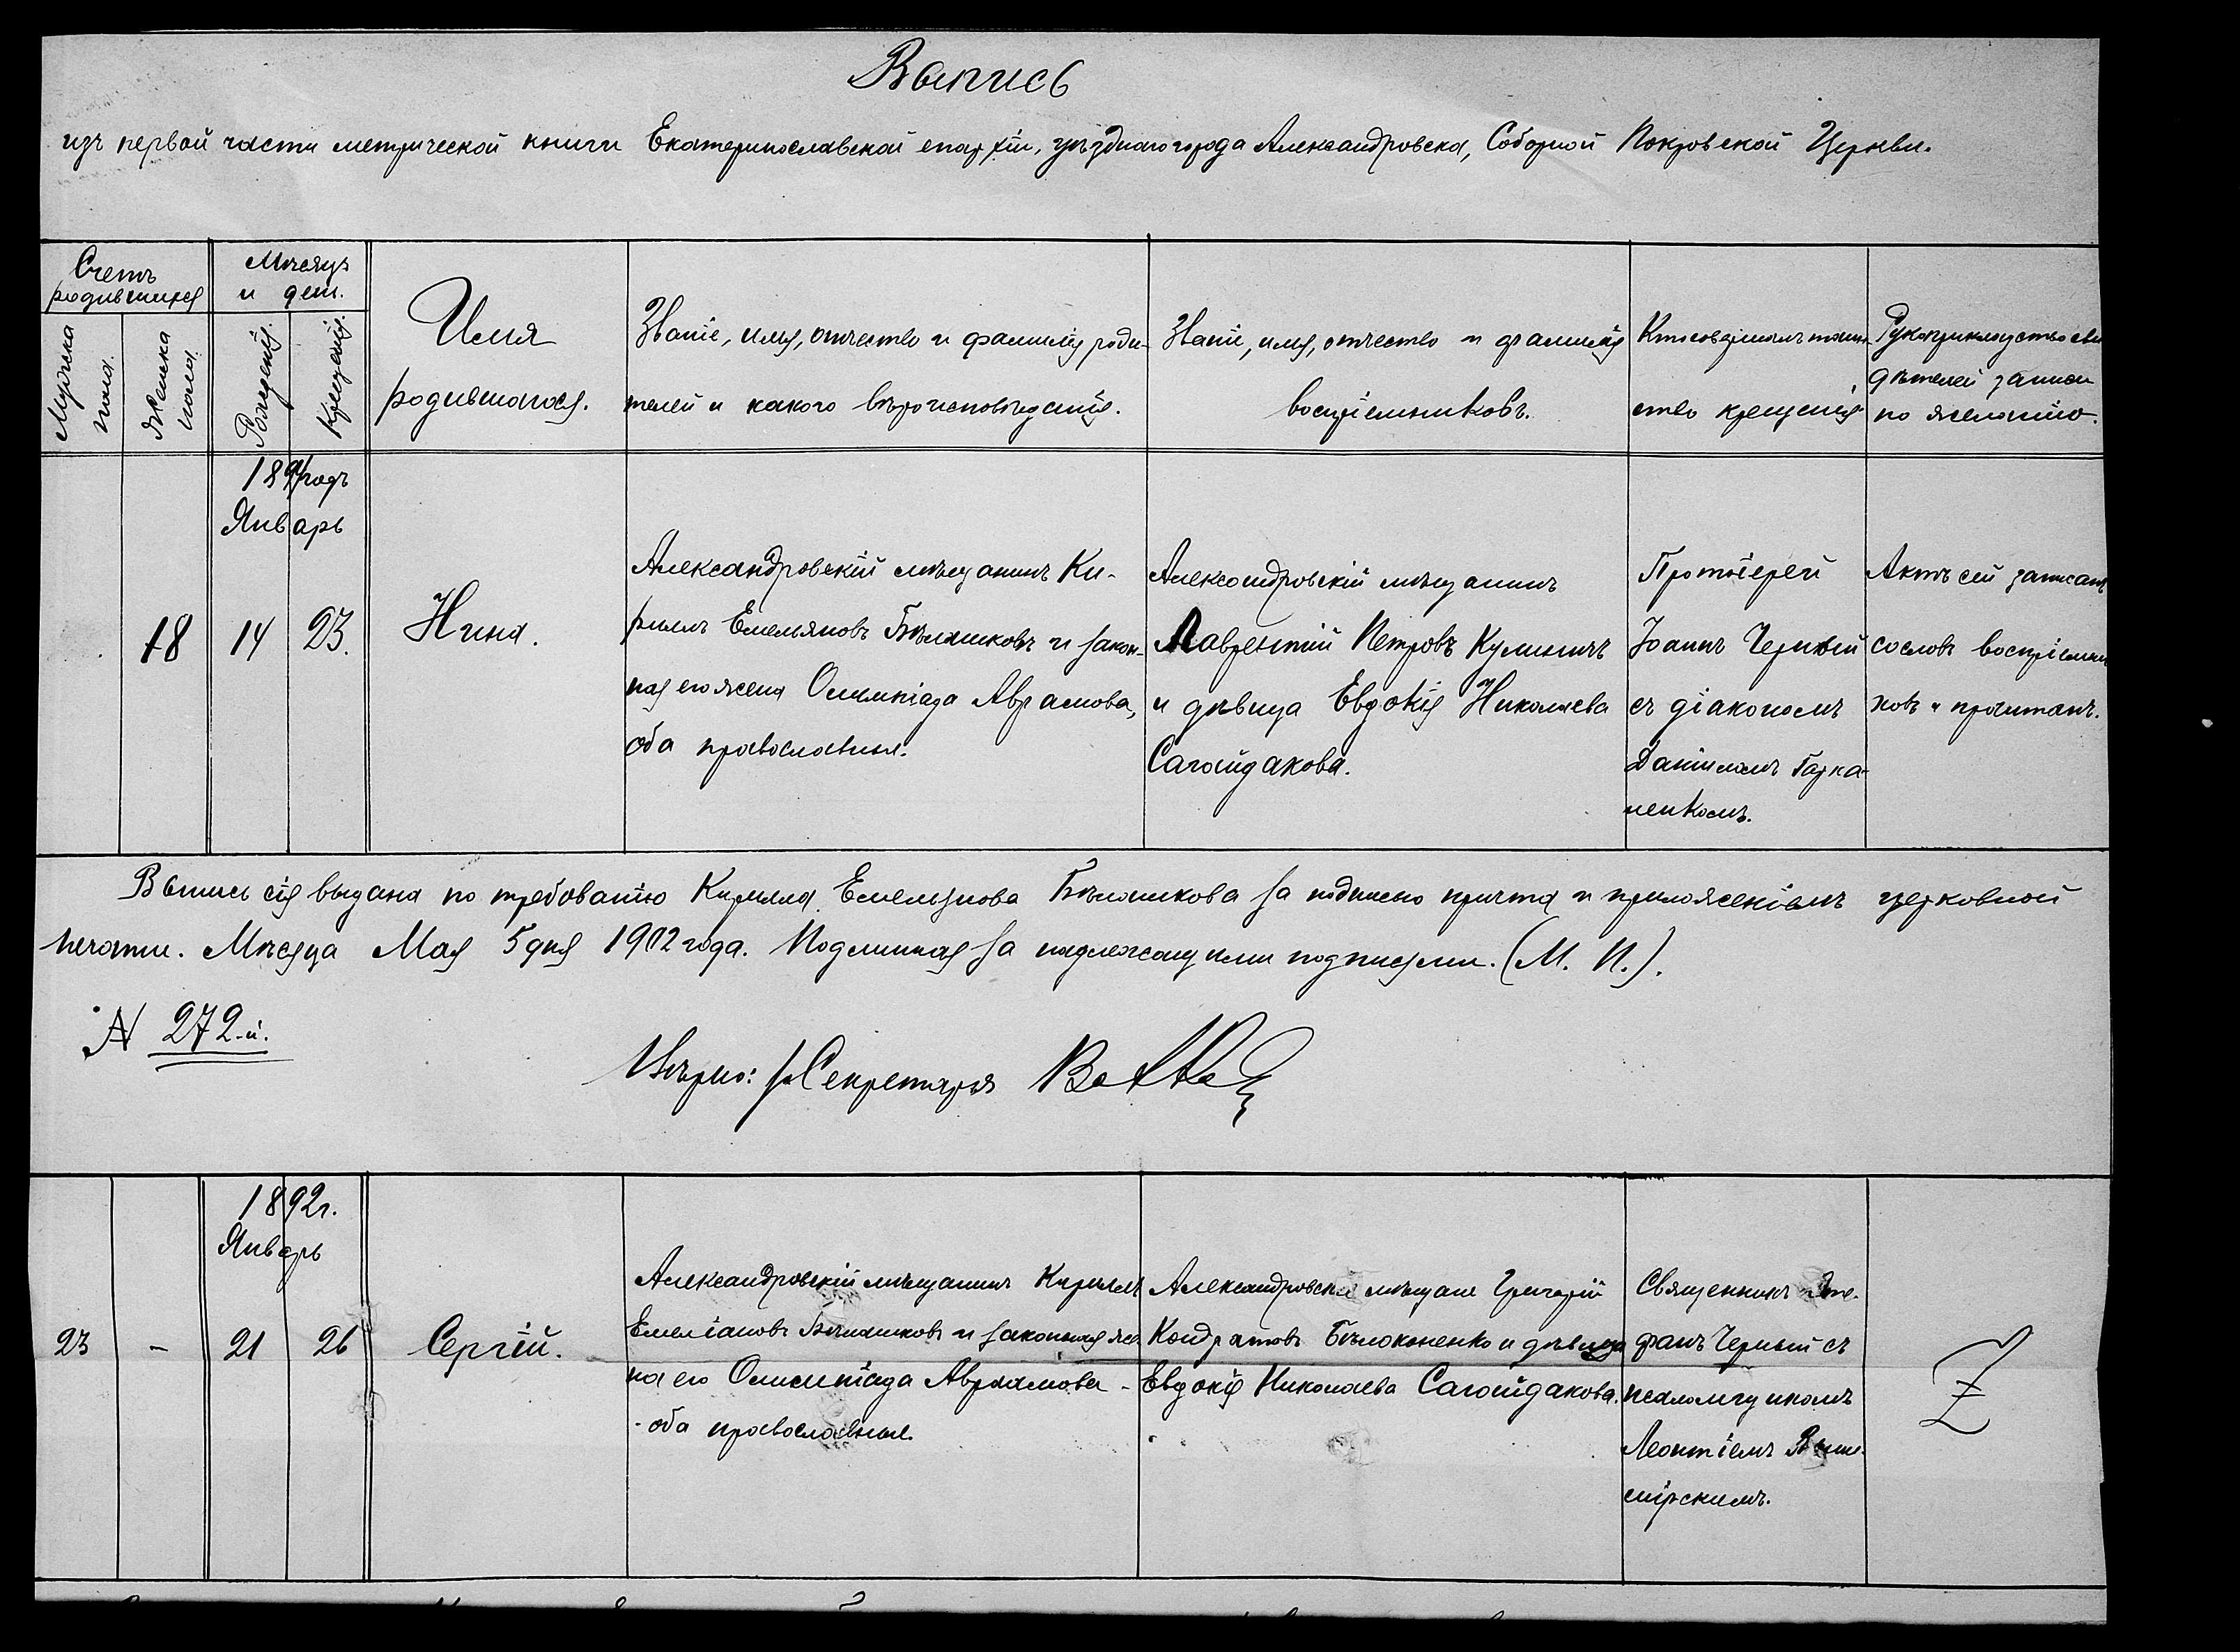 Выпись
изъ первой части метрической книги Екатеринославской епархіи, уѣзднаго города Александровска, Соборной Покровской Церкви.
Счетъ
родившихся
Мужска
пола.
Женска
пола.
Мѣсяцъ
и дни.
Рожденія.
Крещенія.
Имя
родившагося.
Званіе, имя, отчество и фамилія роди-
телей и какого вѣроисповѣданія.
Званіе, имя, отчество и фамилія
воспріемниковъ.
Кто совершалъ таин-
ство крещенія
Рукоприкладство сви
дѣтелей записи
по желанію.
годъ
Январь
18
14
23.
Нина.
Александровскій мѣщанинъ Ки-
риллъ Емельяновъ Бѣлашковъ и закон-
ная его жена Олимпіада Аврамова,
оба православные.
Александровскій мѣщанинъ
Лаврентій Петровъ Кулиничъ
и дѣвица Евдокія Николаева
Сагайдакова.
Протоіерей
Іоаннъ Черный
съ діакономъ
Даніиломъ Гарка-
ненкомъ.
Актъ сей записанъ
со словъ воспріемни
ковъ и прочитанъ.
Выпись сія выдана по требованію Кирилла Емельянова Бѣлашкова за подписью причта и приложеніемъ церковной
печати. Мѣсяца Мая 5 дня 1902 года. Подлинная за надлежащими подписями. (М. П.).
№ 272-й.
Вѣрно: за Секретаря
1892 г.
Январь
23
-
21
26
Сергій.
Александровскій мѣщанинъ Кириллъ
Емеліановъ Бѣлашковъ и законная же
на его Олимпіада Авраамова -
- оба православные.
Александровскіе мѣщане Григорій
Кондратовъ Бѣлоконенко и дѣвица
Евдокія Николаева Сагайдакова.
Священникъ Сте-
фанъ Черный съ
псаломщикомъ
Леонтіемъ
мірскимъ.
Z